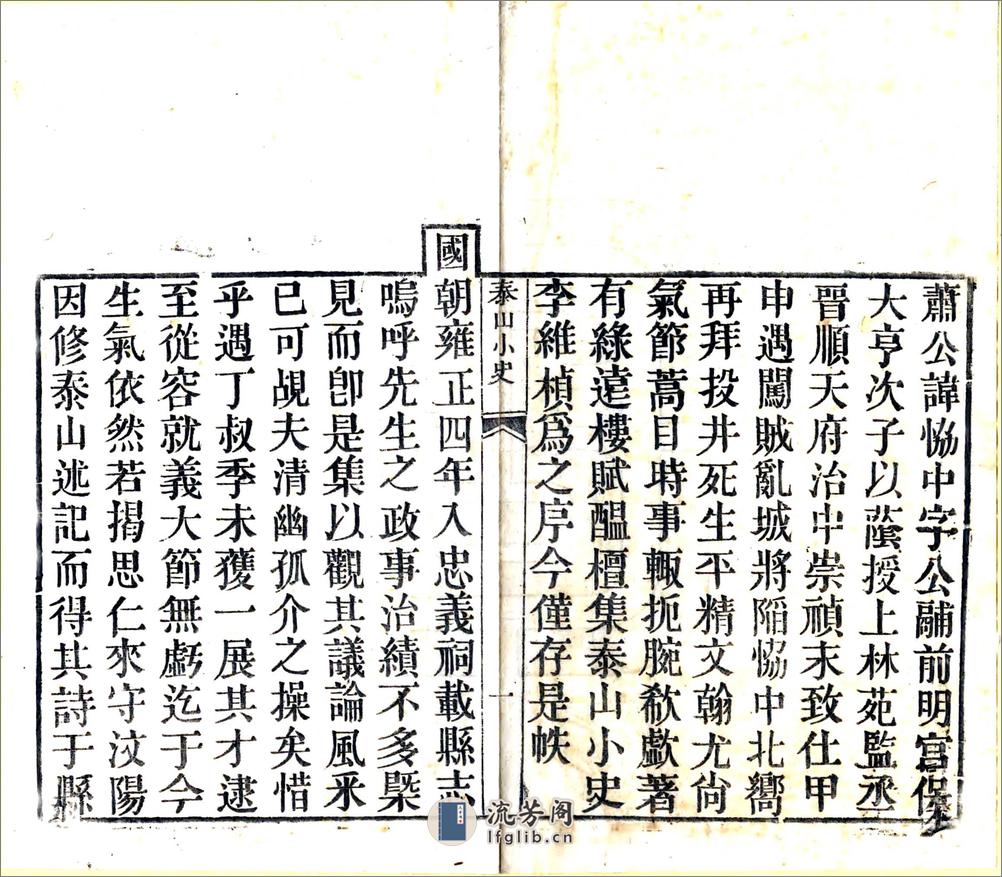 蕭公諱恊中字公黼前明宫保
大亨次子以蔭授上林苑監丞
晉順天府治中崇禎末致仕甲
申遇闖賊亂城將陷恊中北嚮
再拜投井死生平精文翰尤尙
氣節蒿目時事輙扼腕欷歔著
有綠遠樓賦醖檀集泰山小史
李維楨爲之序今僅存是帙
泰山小史
一
國朝雍正四年入忠義祠載縣志
嗚呼先生之政事治績不多槩
見而卽是集以觀其議論風采
已可覘夫清幽孤介之操矣惜
乎遇丁叔季未獲一展其才逮
至從容就義大節無虧迄于今
生氣依然若揭思仁來守汶陽
因修泰山述記而得其詩于縣
流芳阁
lfglib.cn